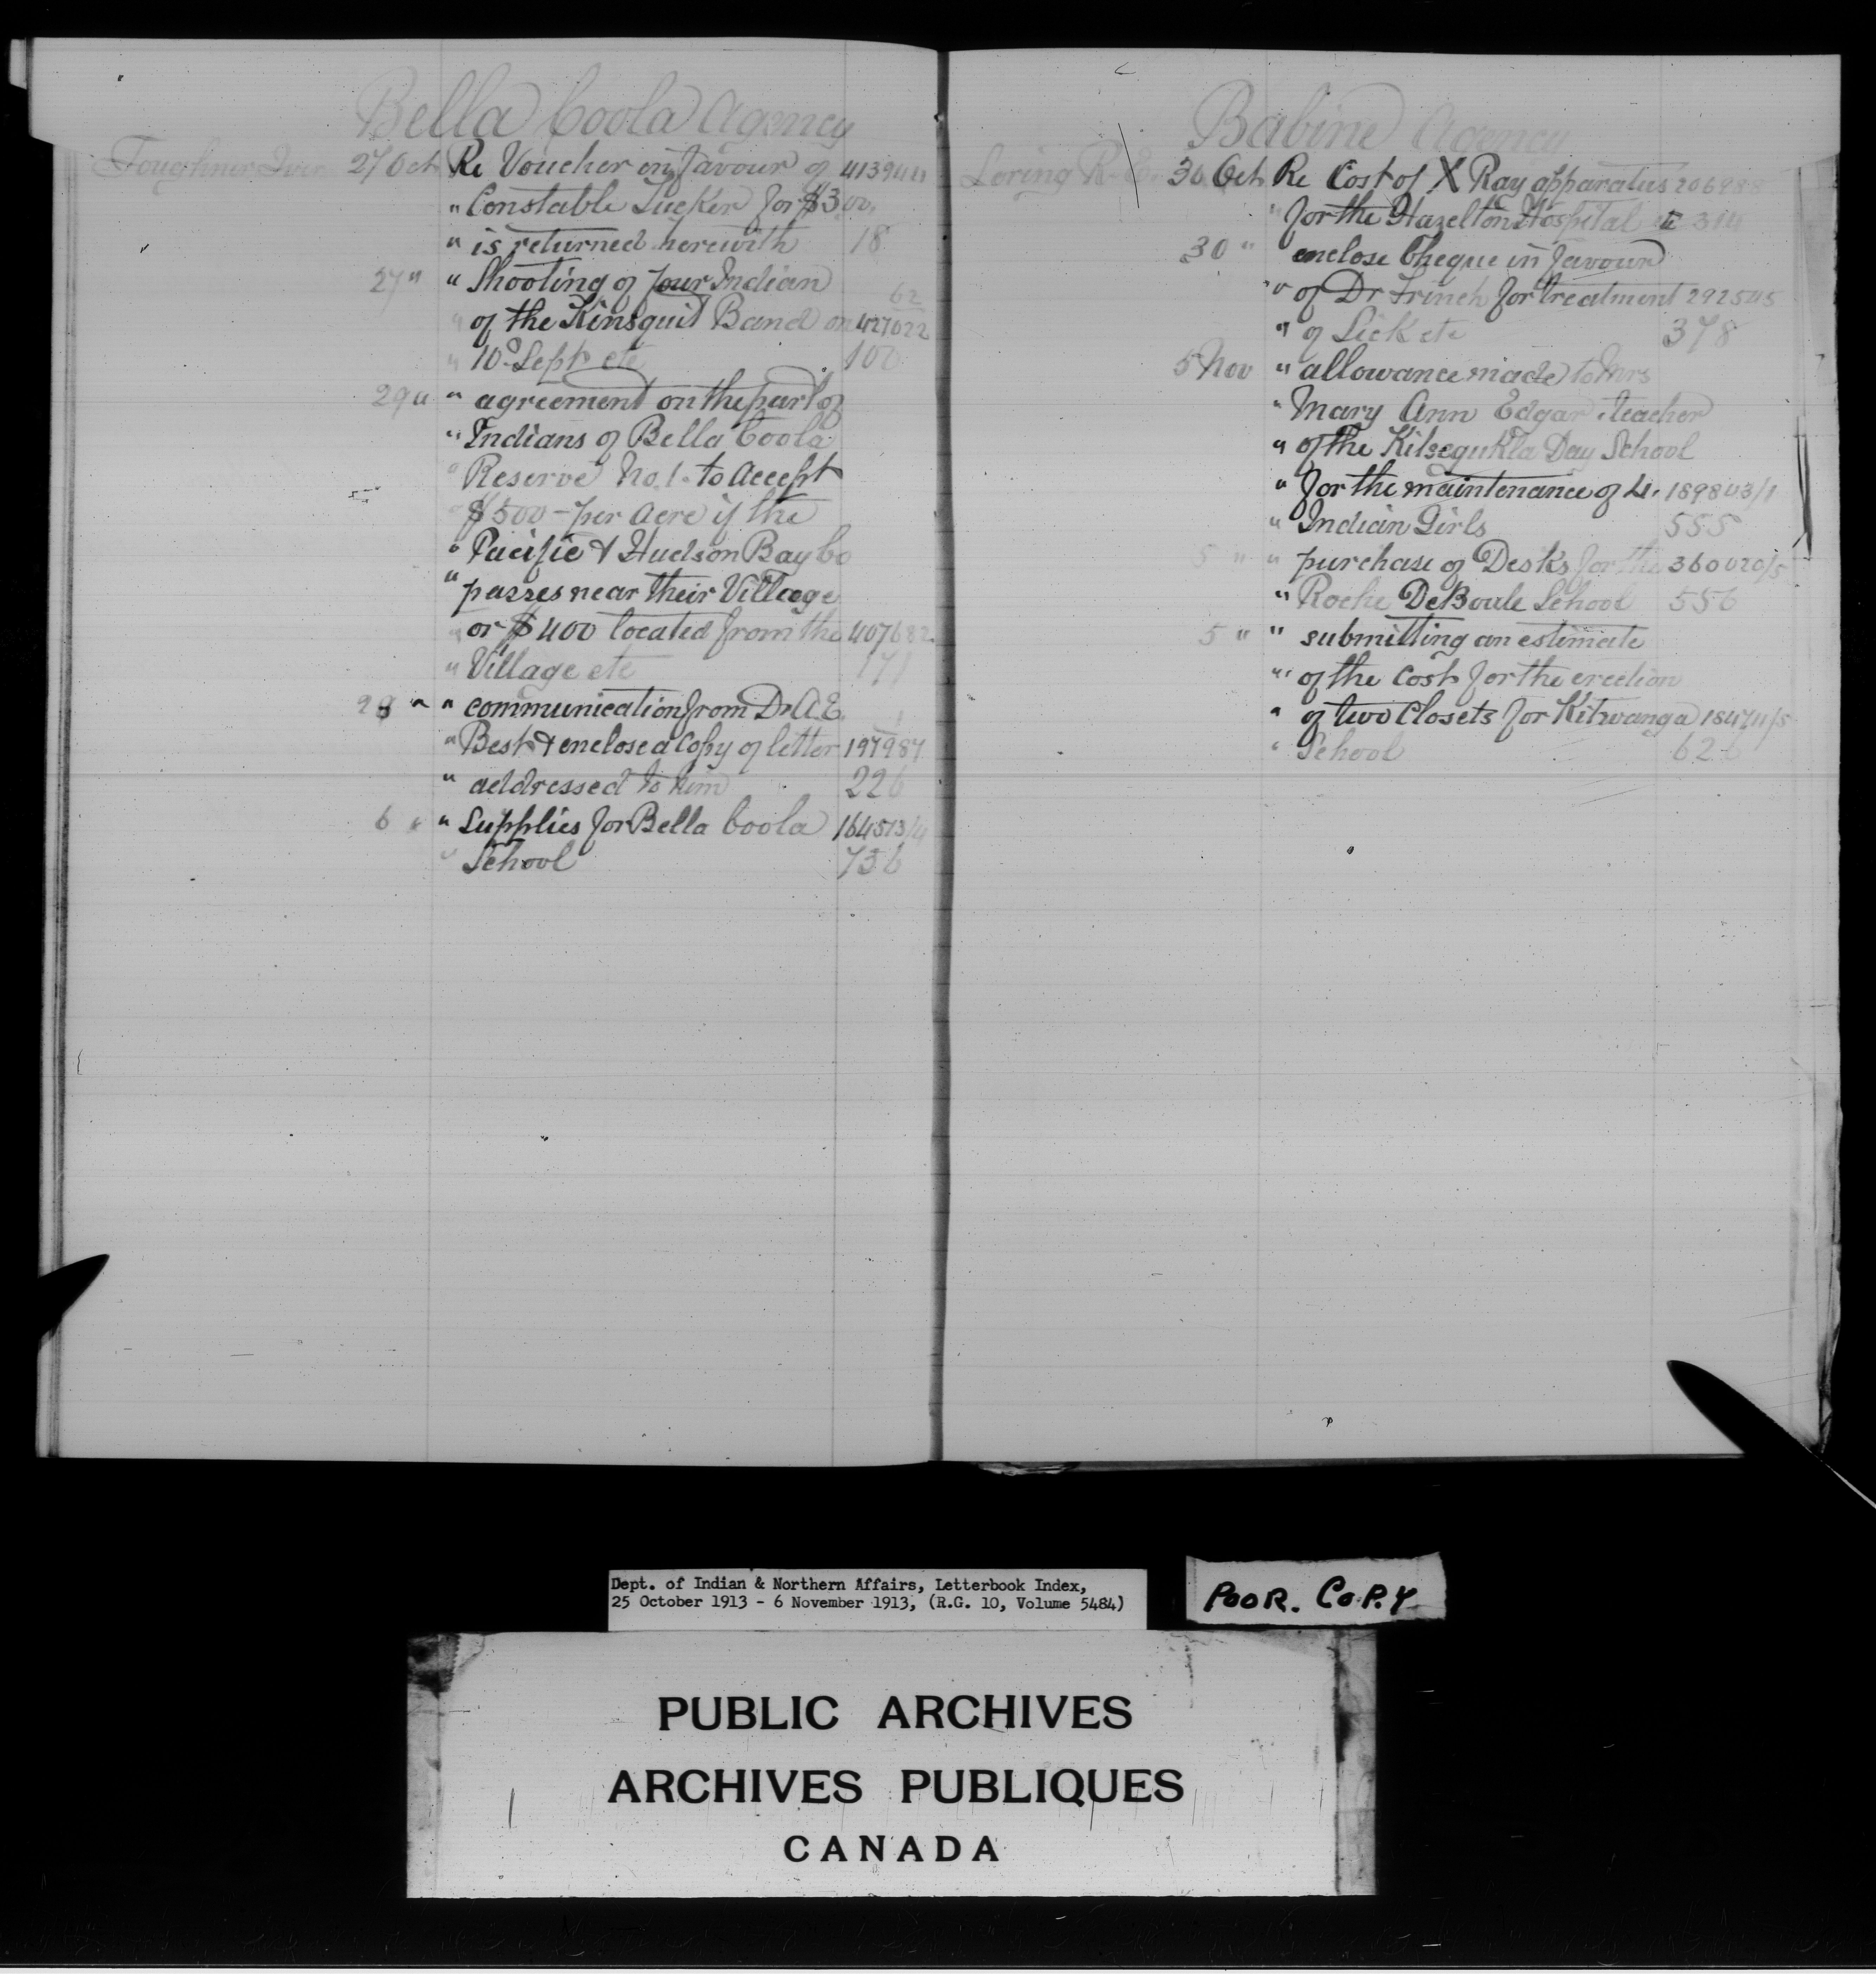 Bella Coola Agency
Foughner Iver 27 Oct Re Voucher in favour of 413944
" Constable Tucker for $3.00
" is returned herewith 18
27 " " Shooting of four Indian 62
" of the Kinsquit Band on 427022
" 10th Sept etc 100
29 " " agreement on the part of
" Indians of Bella Coola
" Reserve No. 1. to accept
" $500 - per acre if the
" Pacific & Hudson Bay Co
" passes near their Village
" or $400 located from the 407682
" Village etc 171
29 " " communication from Dr A.E.
" Best & enclose a copy of letter 197987
" addressed to him 226
6 " " Supplies for Bella Coola 164513/4
" School 736
Babine Agency
Loring R. E. 30 Oct Re Cost of X Ray apparatus 206988
" for the Hazelton Hospital etc 314
30 " enclose Cheque in favour
" of Dr Wrinch for treatment 292545
" of Sick etc 378
5 Nov " allowance made to Mrs
" Mary Ann Edgar teacher
" of the Kitsegukla Day School
" for the maintenance of 4. 189803/1
" Indian Girls 555
5 " " purchase of Desks for the 360020/5
" Roche DeBoule School 556
5 " " submitting an estimate
" of the cost for the erection
" of two Closets for Kitwanga 184711/5
" School 62
Dept. of Indian & Northern Affairs, Letterbook Index,
25 October 1913 - 6 November 1913, (R.G. 10, Volume 5484)
POOR. COPY
PUBLIC ARCHIVES
ARCHIVES PUBLIQUES
CANADA